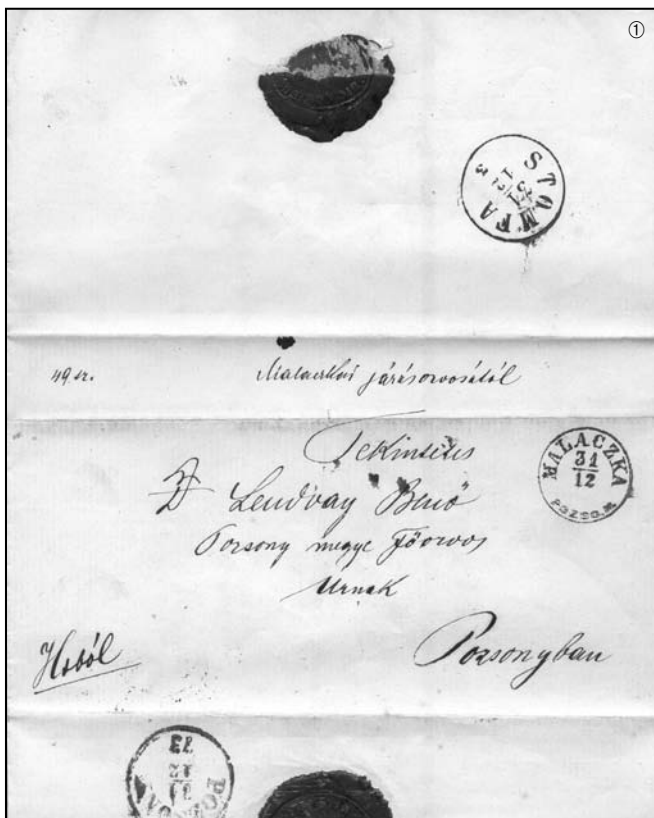 ①
STOMFA
31
12
3
49 sz.
Malaczkai járásorvosától
Tekintetes
Dr Lendvay Benő
Pozsony megye Főorvos
Urnak
MALACZKA
31
12
POZSO.M.
Hs ból
Pozsonyban
31
12
73